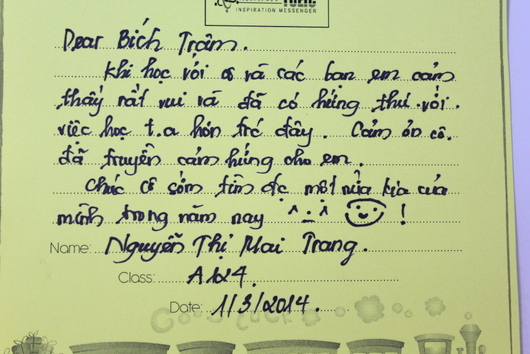 TOEIC
INSPIRATION MESSENGER
Dear Bích Trâm.
Khi học với cs và các bạn em cảm
thấy rất vui và đã có hứng thú với
việc học t.a hơn trc đây. Cảm ơn cô.
đã truyền cảm hứng cho em.
Chúc cô sớm tìm đc một nửa kia của
mình trong năm nay ^-^ !
Name: Nguyễn Thị Mai Trang.
Class: A124.
Date: 1/3/2014.
GOOD LUCK